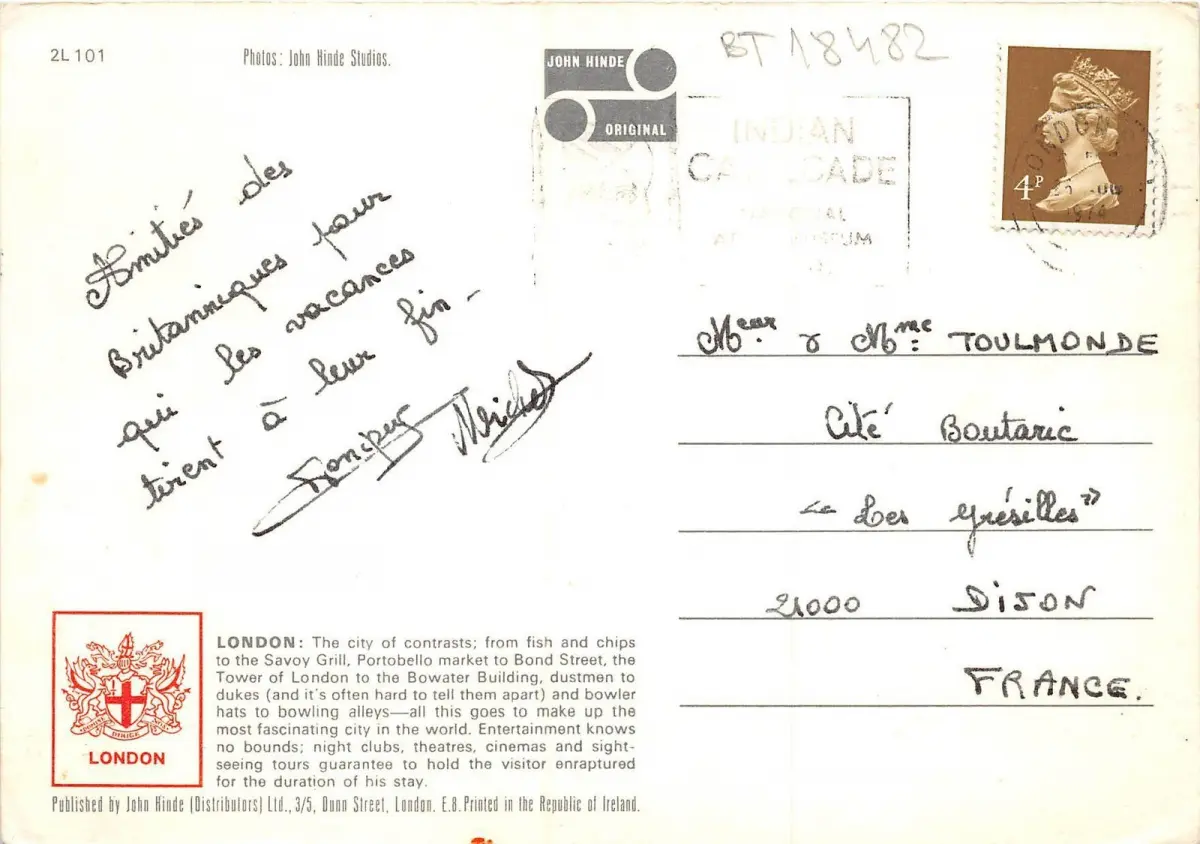 2L 101
Photos: John Hinde Studios.
JOHN HINDE
ORIGINAL
BT 18482
INDIAN
NATIONAL
MUSEUM
4P
LONDON
Amitiés des
Britanniques pour
qui les vacances
tirent à leur fin -
Meur. & Mme: TOULMONDE
Cité Boutaric
"Les Grésilles"
21000 DIJON
FRANCE.
DOMINE DIRIGE NOS
LONDON
LONDON: The city of contrasts; from fish and chips
to the Savoy Grill, Portobello market to Bond Street, the
Tower of London to the Bowater Building, dustmen to
dukes (and it's often hard to tell them apart) and bowler
hats to bowling alleys—all this goes to make up the
most fascinating city in the world. Entertainment knows
no bounds; night clubs, theatres, cinemas and sight-
seeing tours guarantee to hold the visitor enraptured
for the duration of his stay.
Published by John Hinde (Distributors) Ltd., 3/5, Dunn Street, London. E.8. Printed in the Republic of Ireland.